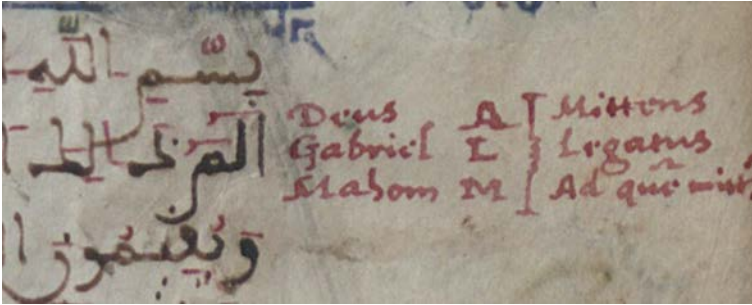 بِسْمِ اللَّهِ
الم ذلك ا
ويقيمون ا
Deus A Mittens
Gabriel L Legatus
Mahom M Ad quē mitt